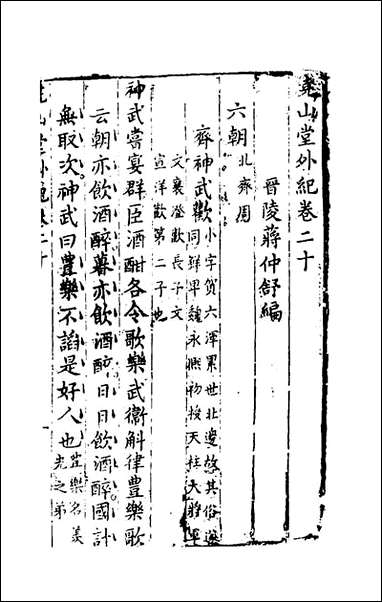 堯山堂外紀卷二十
晉陵蔣仲舒編
六朝北齊周
齊神武歡小字賀六渾累世北邊故其俗遂
同鮮卑魏永熙初授天柱大將軍
文襄澄歡長子文
宣洋歡第二子也
神武嘗宴群臣酒酣各令歌樂武衛斛律豊樂歌
云朝亦飲酒醉暮亦飲酒醉日日飲酒醉國計
無取次神武曰豊樂不謟是好人也豊樂名羨
光之弟
堯山堂外紀卷二十